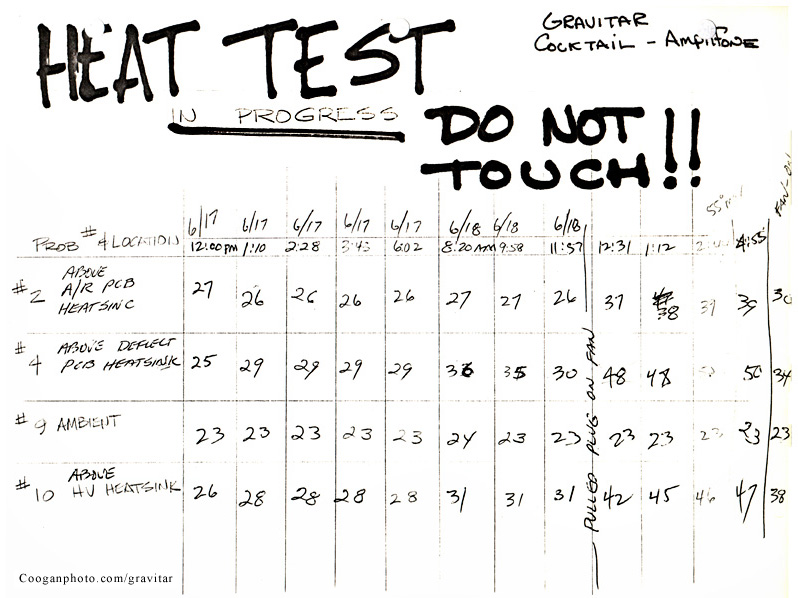 HEAT TEST
GRAVITAR
COCKTAIL - AMPLIFONE
IN PROGRESS
DO NOT
TOUCH!!
6/17 6/17 6/17 6/17 6/17 6/18 6/18 6/18
PROB # & LOCATION 12:00pm 1:10 2:28 3:43 6:02 8:20 AM 9:58 11:57 12:31 1:12 4:55
#2 ABOVE A/R PCB HEATSINC 27 26 26 26 26 27 27 26 37 38 39 39 30
#4 ABOVE DEFLECT PCB HEATSINK 25 29 29 29 29 36 35 30 48 48 50 34
#9 AMBIENT 23 23 23 23 23 24 23 23 23 23 23 23 23
#10 ABOVE HV HEATSINK 26 28 28 28 28 31 31 31 42 45 46 47 38
PULLED PLUG ON FAN
Cooganphoto.com/gravitar